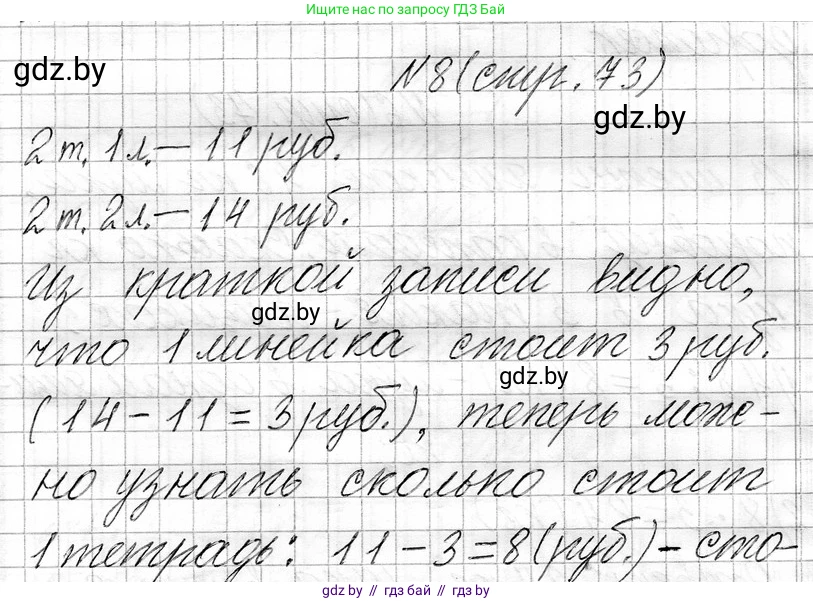 Ищите нас по запросу ГДЗ Бай
gdz.by
N8 (стр. 73)
gdz.by
2 т. 1 л. — 11 руб.
2 т. 2 л. — 14 руб.
Из краткой записи видно,
gdz.by
что 1 линейка стоит 3 руб.
gdz.by
(14 - 11 = 3 руб.), теперь мож-
но узнать сколько стоит
1 тетрадь: 11 - 3 = 8 (руб.) - сто-
gdz.by // гдз бай // gdz.by